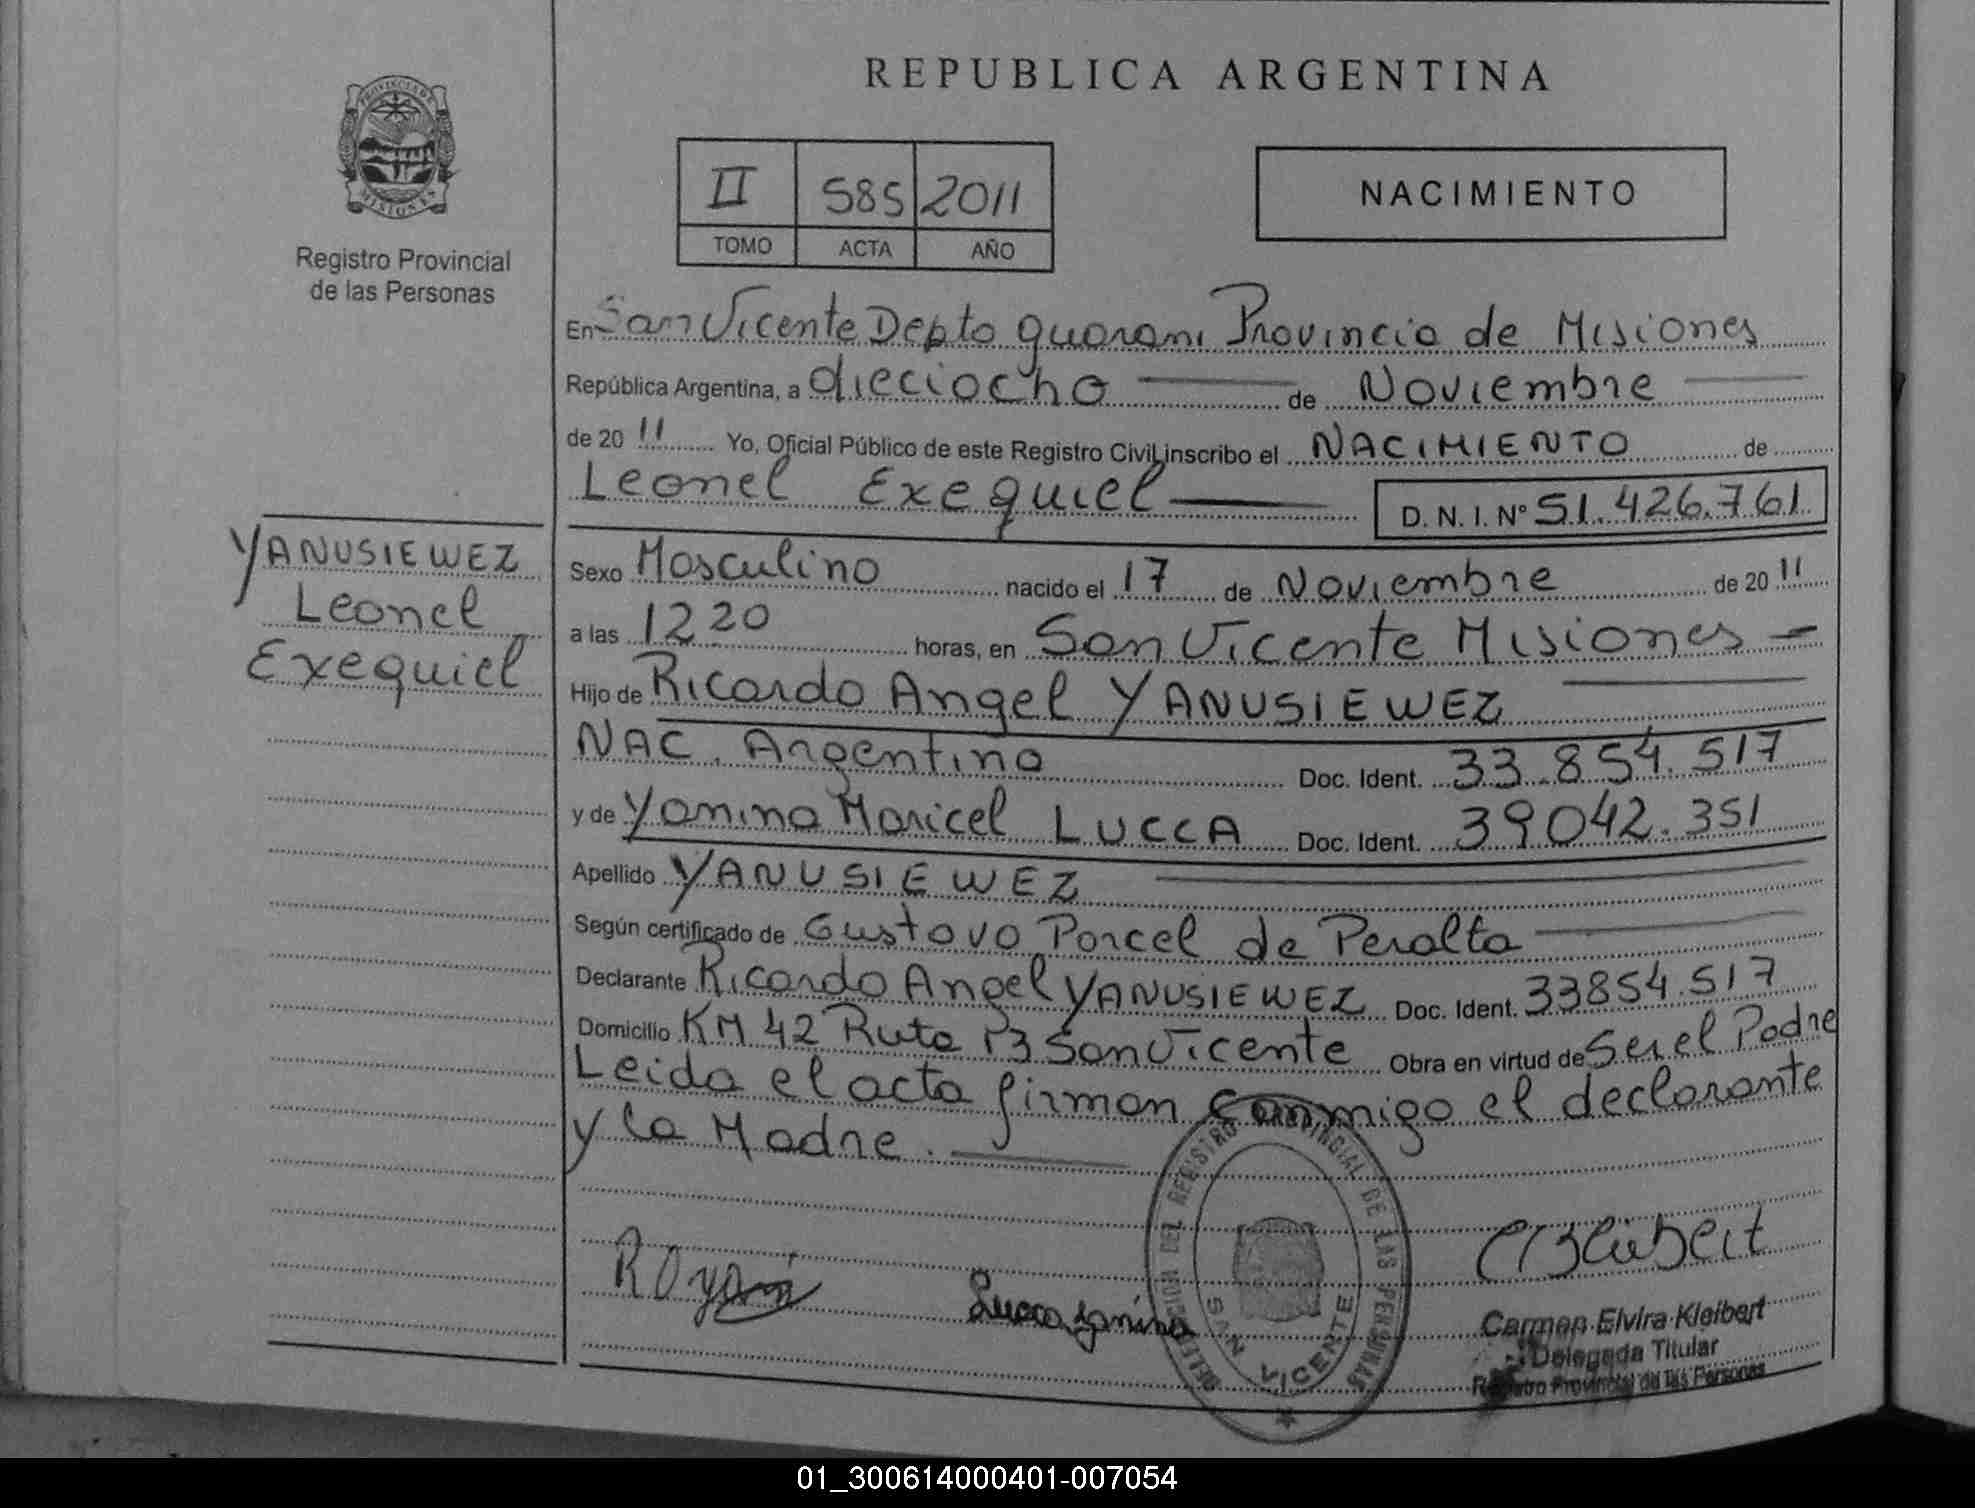 REPUBLICA ARGENTINA
PROVINCIA DE MISIONES
Registro Provincial
de las Personas
II 585 2011
TOMO ACTA AÑO
NACIMIENTO
En San Vicente Depto Guarani Provincia de Misiones
República Argentina, a dieciocho de Noviembre
de 20 11 Yo, Oficial Público de este Registro Civil inscribo el NACIMIENTO de
Leonel Exequiel D. N. I. Nº 51.426.761
YANUSIEWEZ
Leonel
Exequiel
Sexo Masculino nacido el 17 de Noviembre de 20 11
a las 12 20 horas, en San Vicente Misiones
Hijo de Ricardo Angel YANUSIEWEZ
NAC. Argentina Doc. Ident. 33.854.517
y de Yanina Maricel LUCCA Doc. Ident. 39042.351
Apellido YANUSIEWEZ
Según certificado de Gustavo Porcel de Peralta
Declarante Ricardo Angel YANUSIEWEZ Doc. Ident. 33854.517
Domicilio KM 42 Ruta 13 San Vicente Obra en virtud de Ser el Padre
Leida el acta firman conmigo el declarante
y la Madre.
DELEGACION DEL REGISTRO PROVINCIAL DE LAS PERSONAS
SAN VICENTE
Lucca Yanina
Carmen Elvira Kleibert
Delegada Titular
Registro Provincial de las Personas
01_300614000401-007054